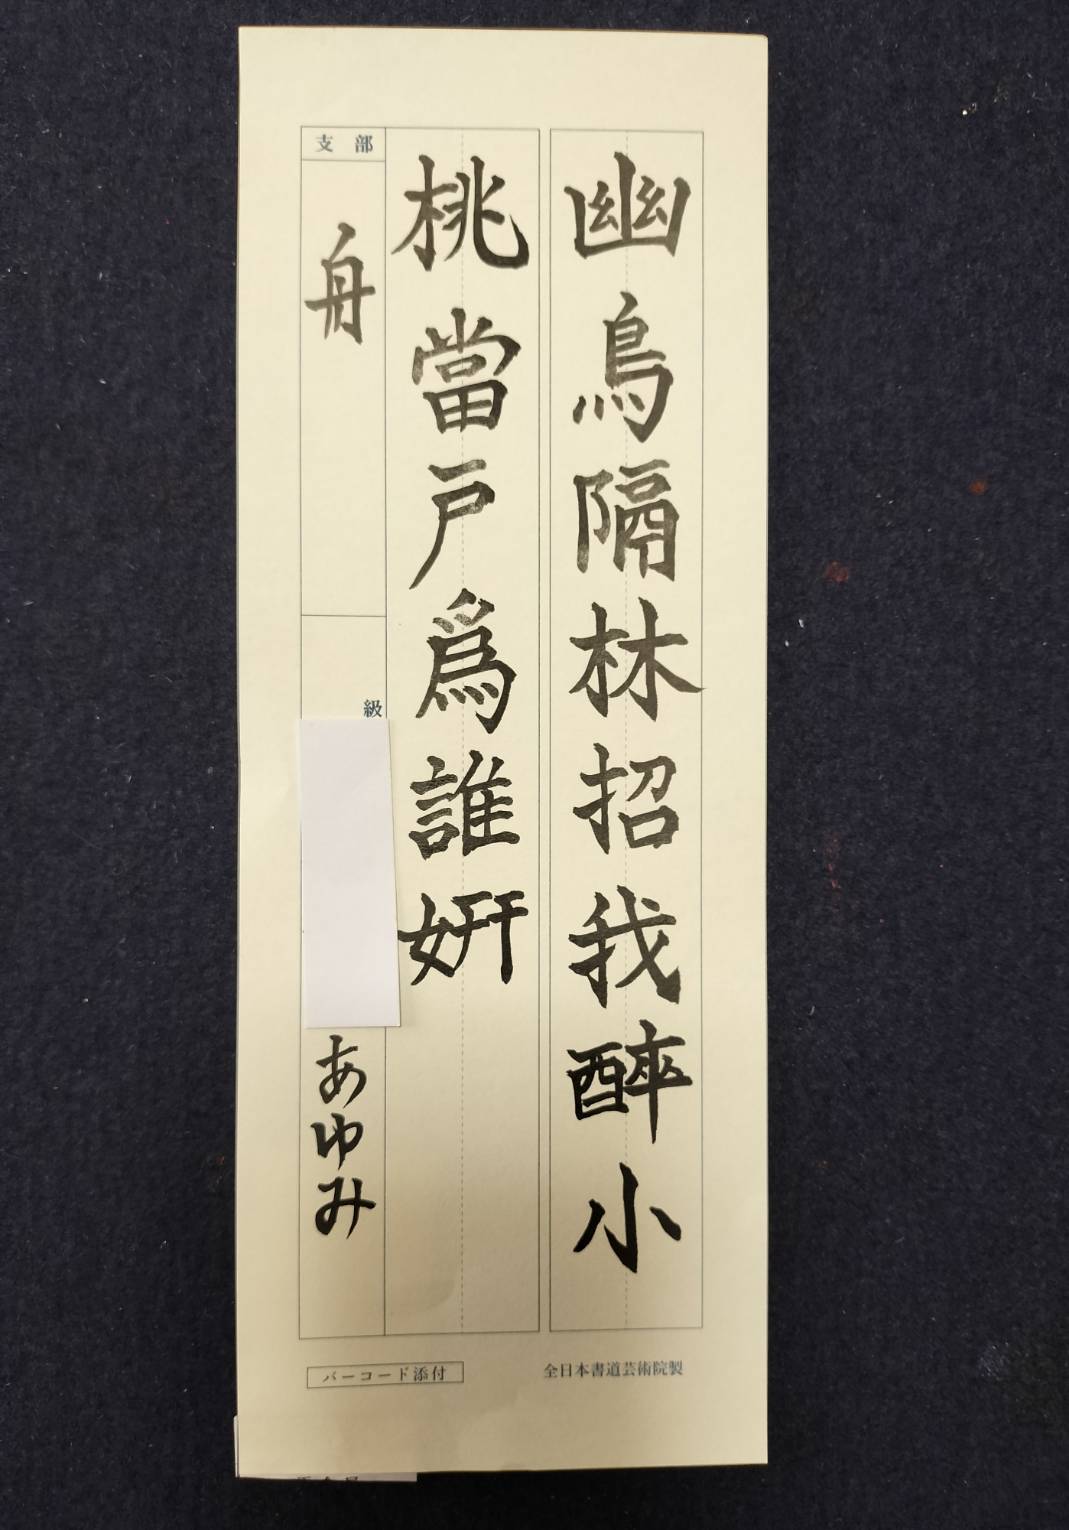 幽鳥隔林招我醉小
桃當戸爲誰妍
支部
舟
級
あゆみ
バーコード添付
全日本書道芸術院製